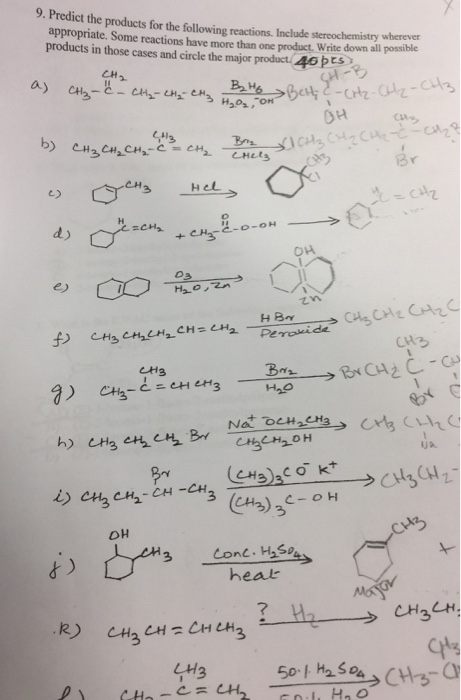 9. Predict the products for the following reactions. Include stereochemistry wherever
appropriate. Some reactions have more than one product. Write down all possible
products in those cases and circle the major product. (40pts)
a) CH3-C-CH2-CH2-CH3 CH2 B2H6 H2O2, -OH OH
b) CH3CH2CH2-C=CH2 CH3 Br2 CHCl3 Br
c) CH3 HCl CH3 Cl
d) H C=CH2 + CH3-C-O-OH O C=CH2
e) O3 H2O, Zn OH Zn
f) CH3CH2CH2CH=CH2 HBr Peroxide CH3CH2CH2C
g) CH3-C=CHCH3 CH3 Br2 H2O BrCH2C- CH3 Br
h) CH3CH2CH2Br Na+ -OCH2CH3 CH3CH2OH CH3CH2C
i) CH3CH2-CH-CH3 Br (CH3)3CO- K+ (CH3)3C-OH CH3CH2-
j) OH CH3 Conc. H2SO4 heat CH3 Major +
k) CH3CH=CHCH3 ? H2 CH3CH2
l) CH3-C=CH2 CH3 50·1. H2SO4 50·1. H2O CH3-C CH3